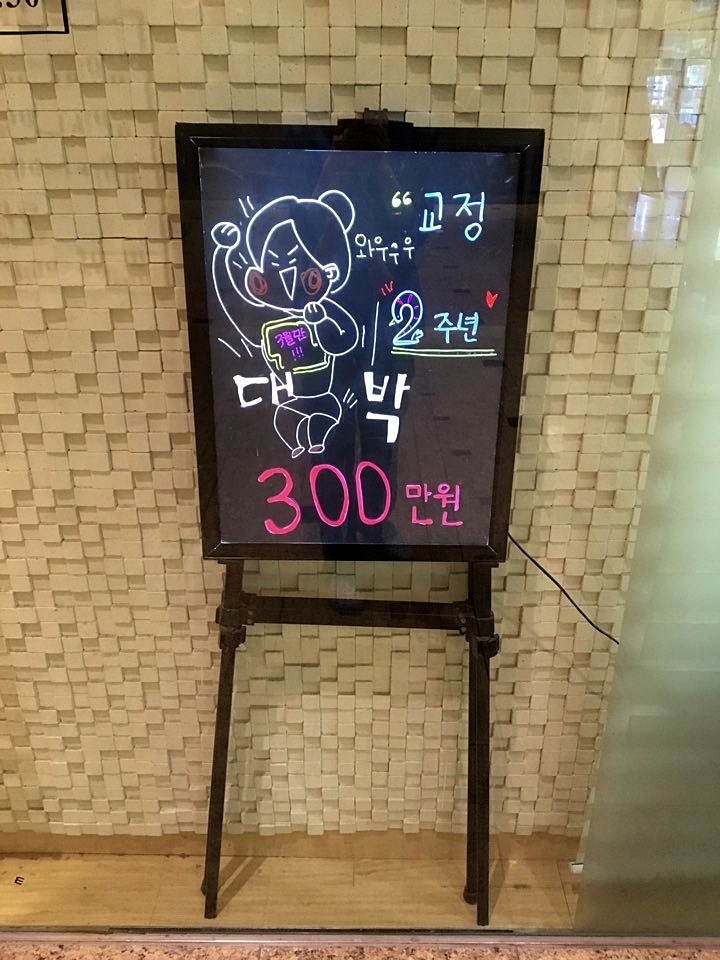 “ 교정
와우우우
2주년
3월만
!!!
대박
300만원
E